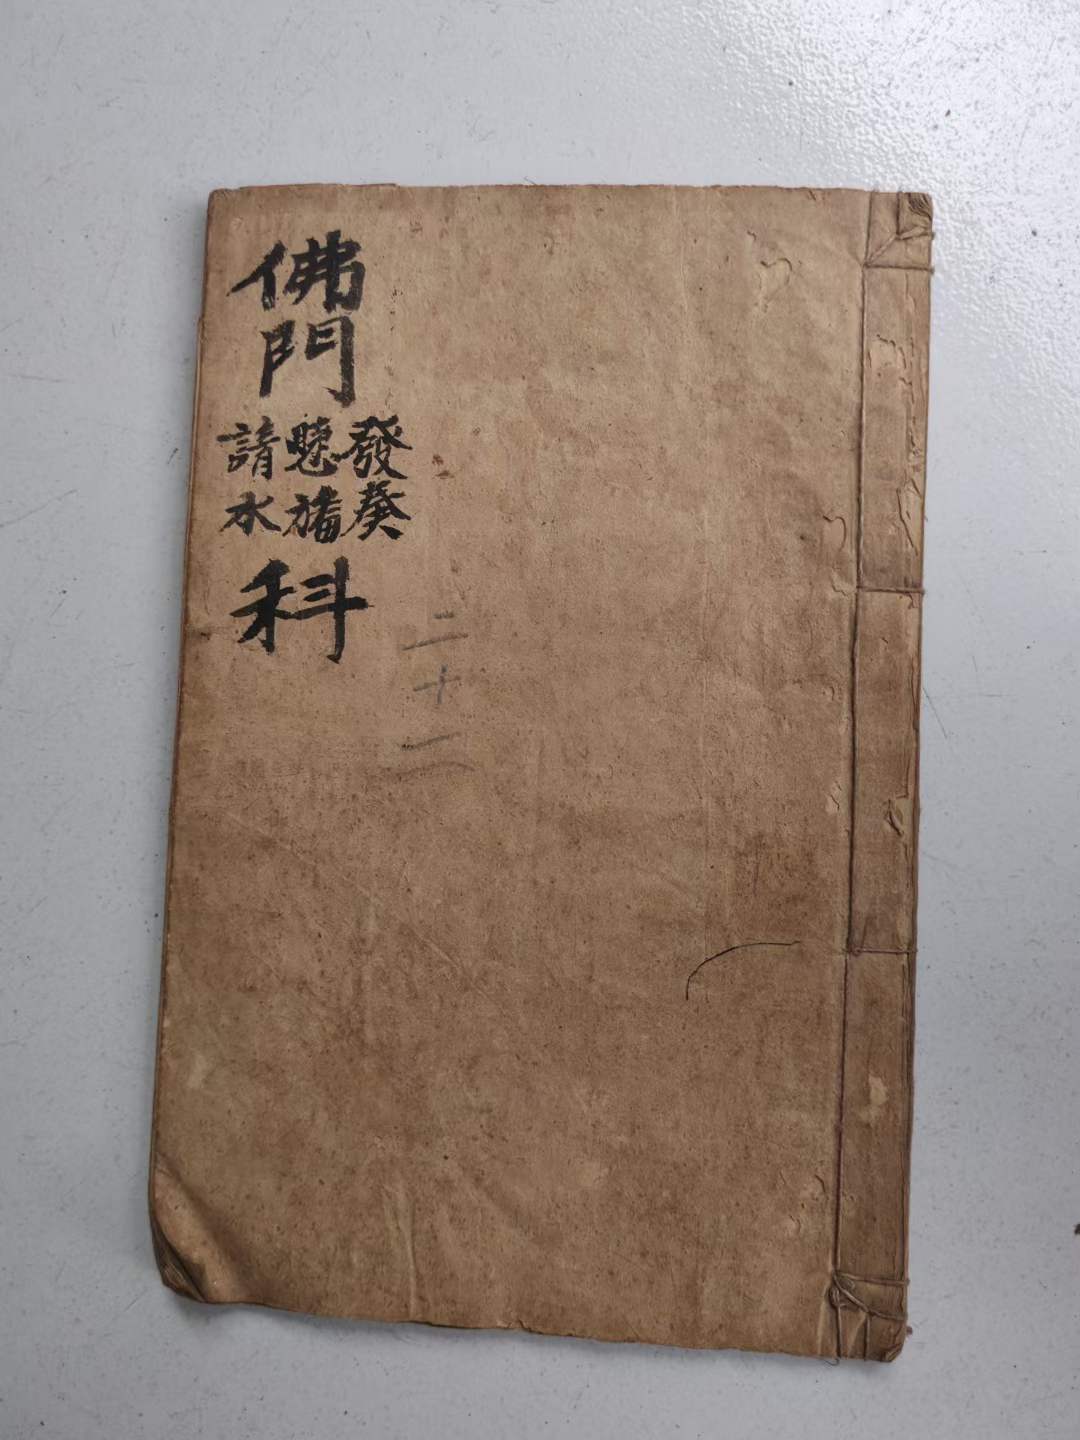 佛門
發奏
懸旛
請水
科
二十一